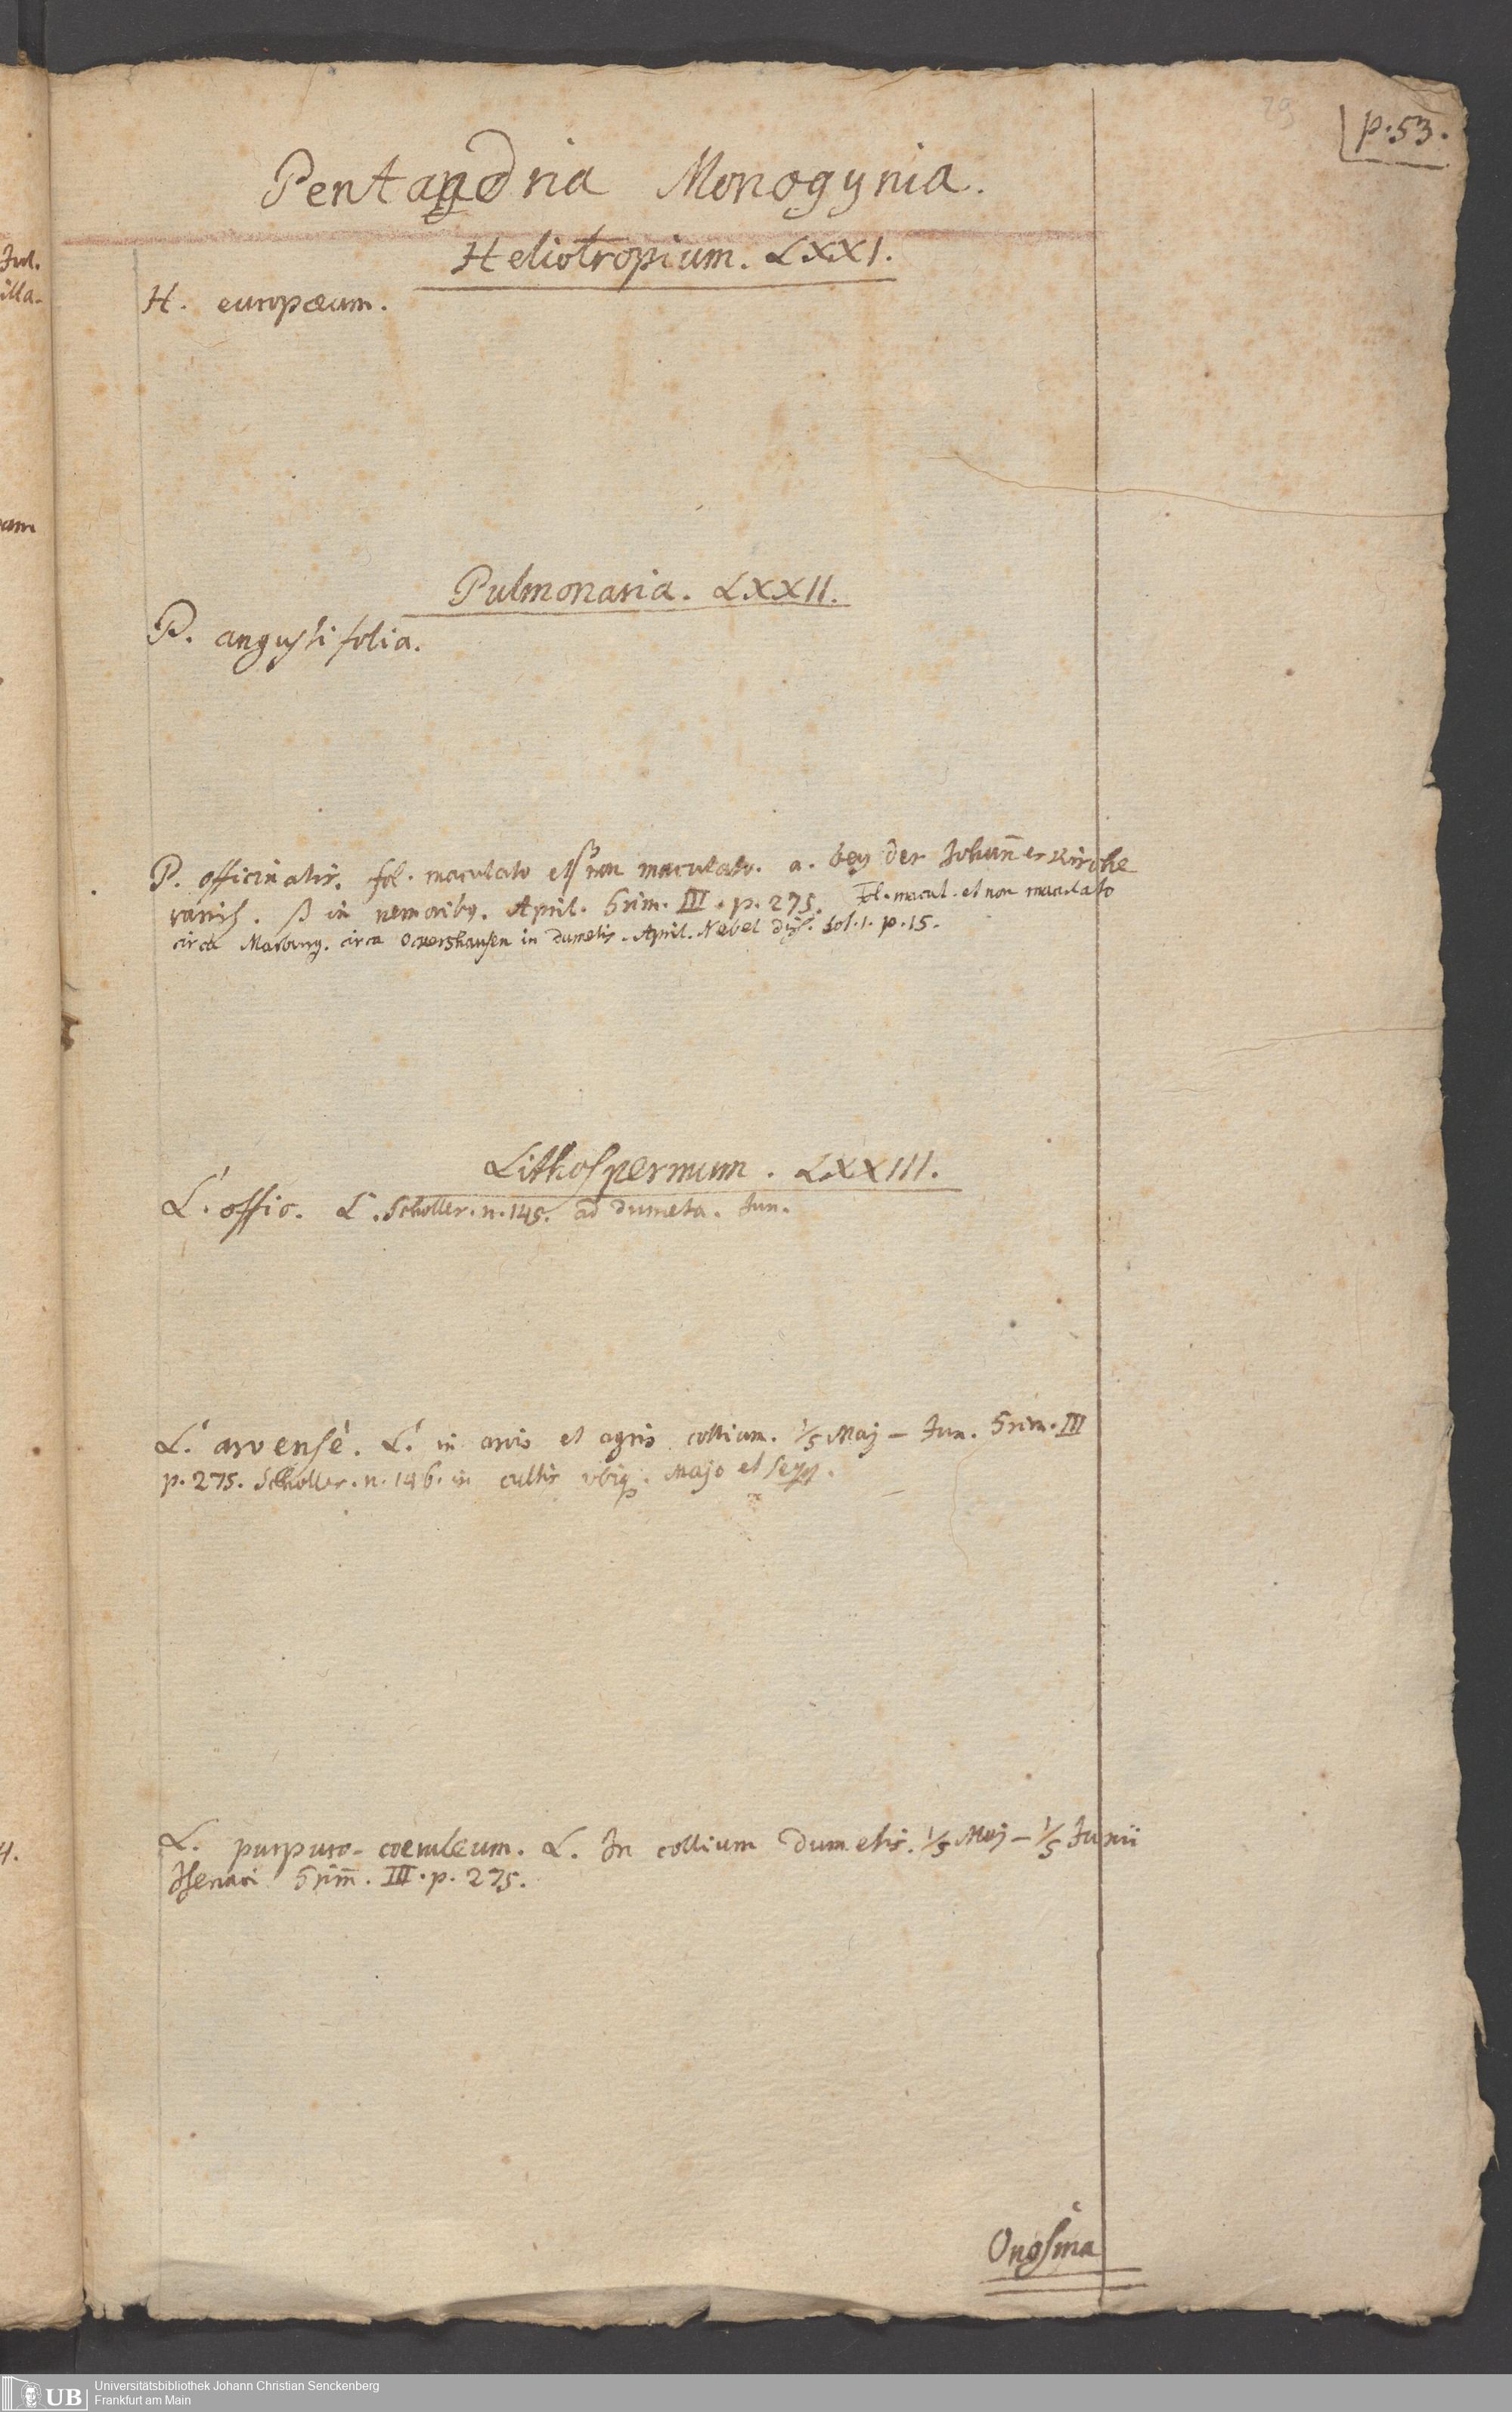 29
p. 53.
Pentandria Monogynia.
Heliotropium. LXXI.
H. europæum.
Pulmonaria. LXXII.
P. angustifolia.
P. officinalis. fol. maculato et β non maculato. a. bey der Johan̅erkirche
rariss. β in nemoribus. April. Grim. III. p. 275. Fol. macul. et non maculato
circa Marburg. circa Ockershausen in dumetis. April. Nebel diss. sol. 1. p. 15.
Lithospermum. LXXIII.
L. offic. L. Scholler. n. 145. ad dumeta. Jun.
L. arvense. L. in arvis et agris collium. 1/5 Maj – Jun. Grim. III
p. 275. Scholler. n. 146. in cultis ubiq. Majo et seqq.
L. purpuro-coeruleum. L. In collium dumetis. 1/5 Maj – 1/5 Junii
Isenaci Grim̅. III. p. 275.
Onosma
Jul.
illa.
am
4.
UB
Universitätsbibliothek Johann Christian Senckenberg
Frankfurt am Main